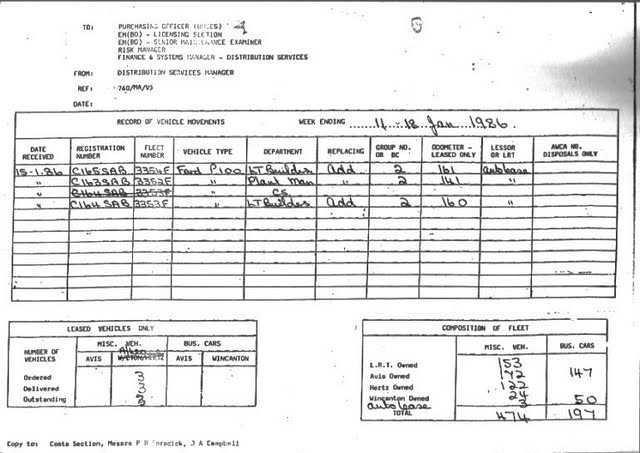 TO: PURCHASING OFFICER
EM(BO) - LICENSING SECTION
EM(BO) - SENIOR MAINTENANCE EXAMINER
RISK MANAGER
FINANCE & SYSTEMS MANAGER - DISTRIBUTION SERVICES
FROM: DISTRIBUTION SERVICES MANAGER
REF: 760/MA/VS
DATE:
RECORD OF VEHICLE MOVEMENTS WEEK ENDING 11 - 18 Jan 1986
DATE RECEIVED REGISTRATION NUMBER FLEET NUMBER VEHICLE TYPE DEPARTMENT REPLACING GROUP NO. OR BC ODOMETER - LEASED ONLY LESSOR OR LRT AWCA NO. DISPOSALS ONLY
15.1.86 C165SAB 3354F Ford P100 LT Builder Add 2 161 autolease
" C163SAB 3352F " Plant Man " 2 141 "
" C164SAB 3353F CS
" C164SAB 3353F " LT Builder Add 2 160 "
LEASED VEHICLES ONLY
NUMBER OF VEHICLES MISC. VEH. BUS. CARS
AVIS HERTZ AVIS WINCANTON
Ordered 3
Delivered 3
Outstanding 3
COMPOSITION OF FLEET
MISC. VEH. BUS. CARS
L.R.T. Owned 153
Avis Owned 172 147
Hertz Owned 122
Wincanton Owned 24 50
autolease 3
TOTAL 474 197
Copy to: Costs Section, Messrs P D J A Campbell